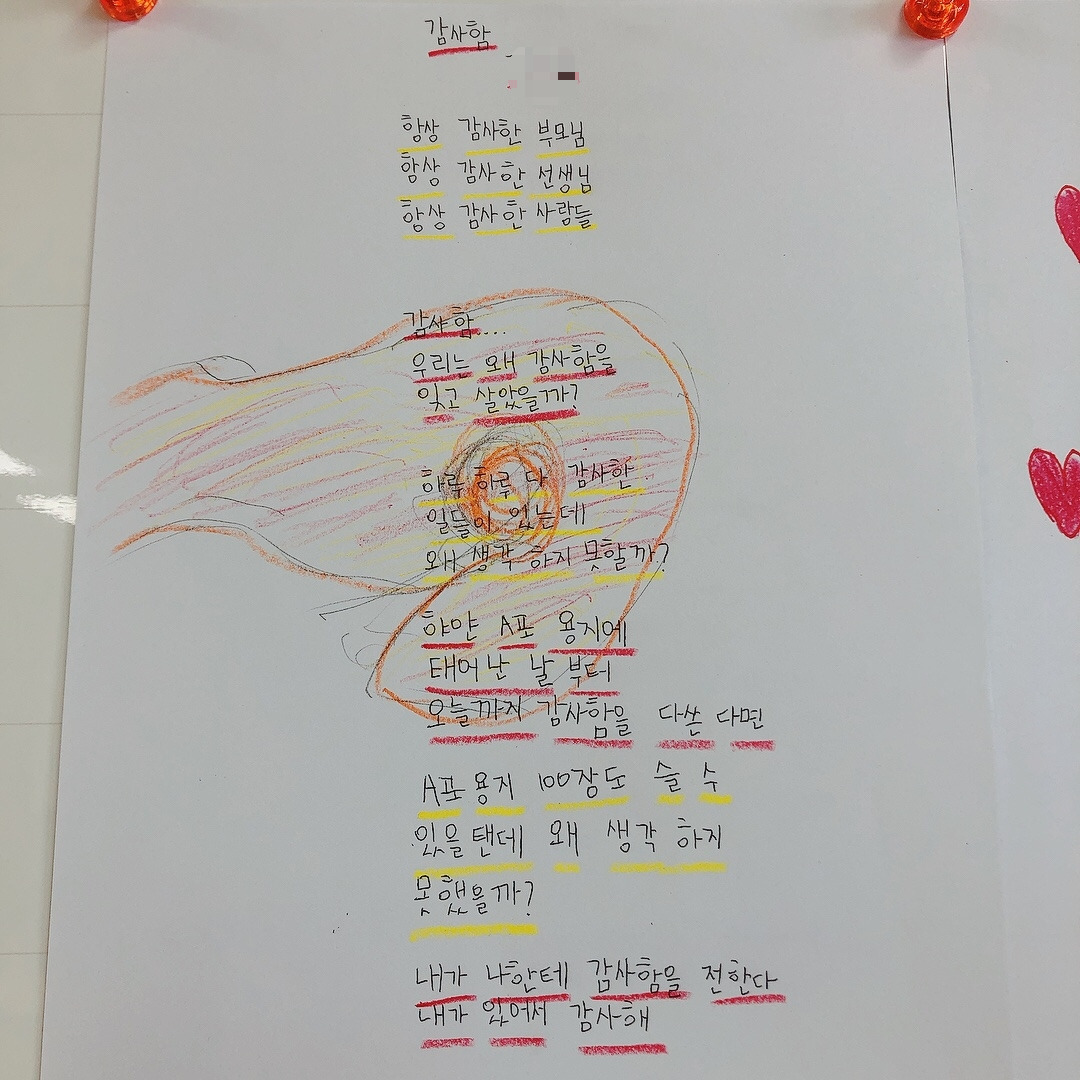 감사함
항상 감사한 부모님
항상 감사한 선생님
항상 감사한 사람들
감사함....
우리는 왜 감사함을
잊고 살았을까?
하루 하루 다 감사한
일들이 있는데
왜 생각 하지 못할까?
하얀 A포 용지에
태어난 날 부터
오늘까지 감사함을 다쓴 다면
A포용지 100장도 슬 수
있을탠데 왜 생각 하지
못했을까?
내가 나한테 감사함을 전한다
내가 있어서 감사해